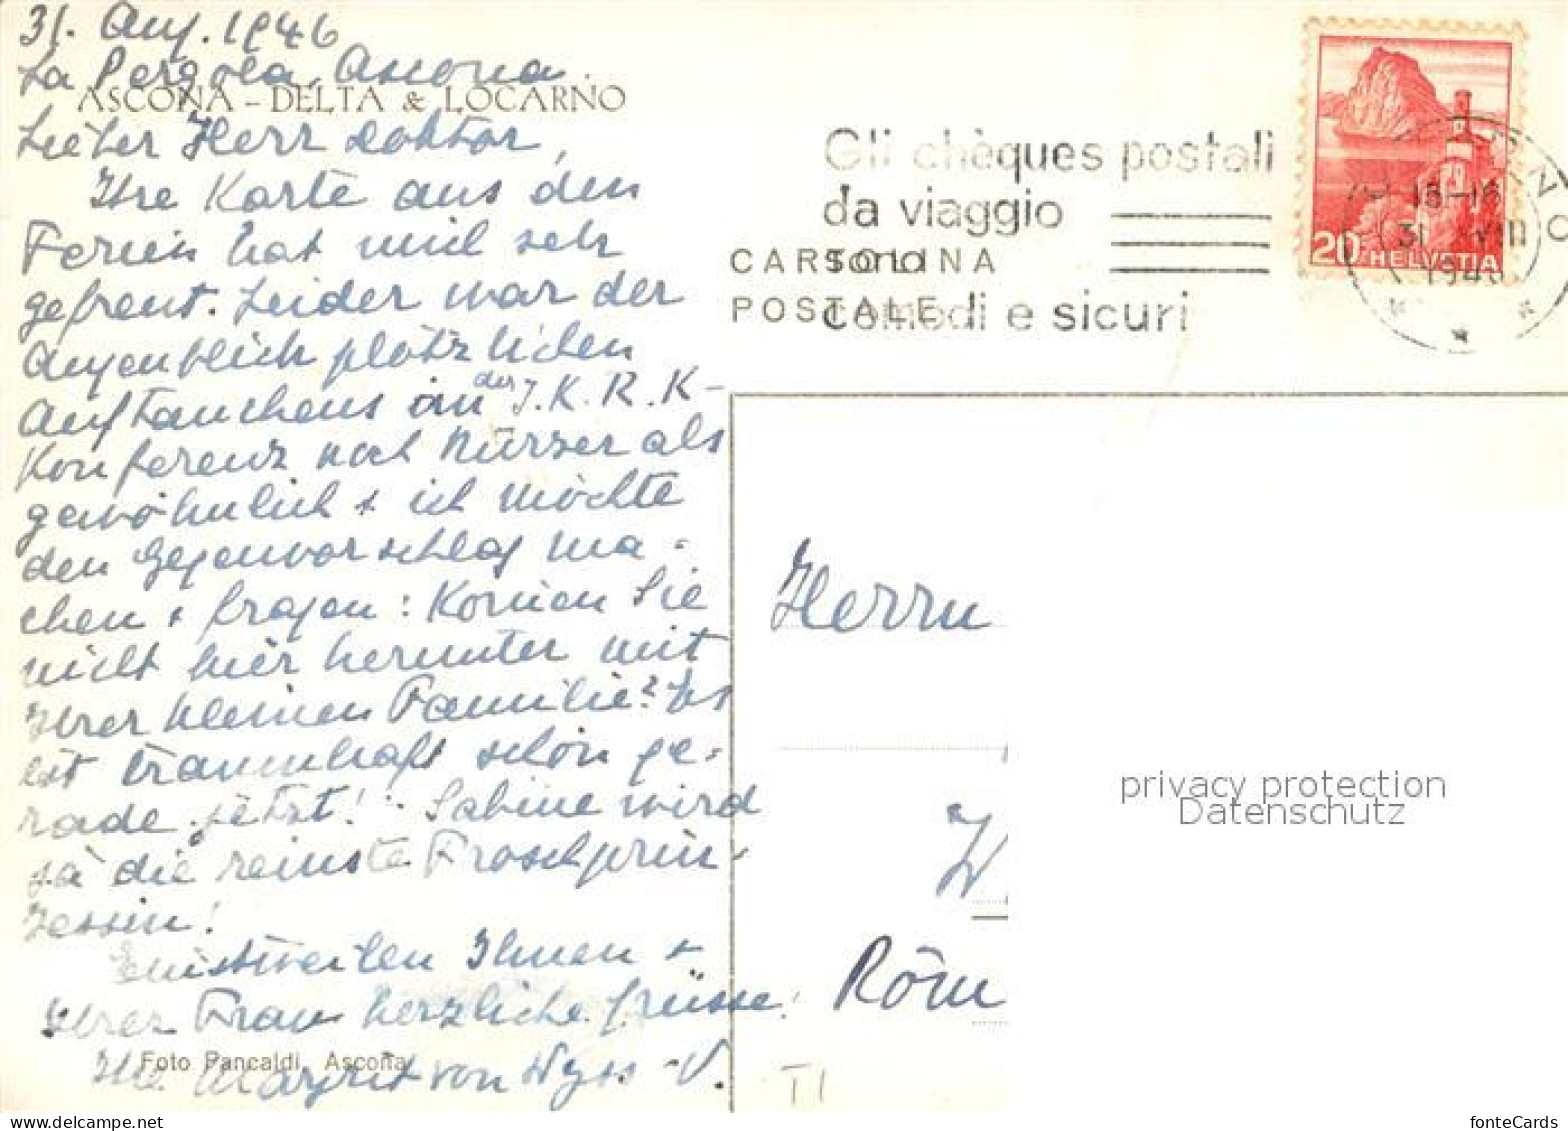 31. Aug. 1946
La Pergola, Ascona
ASCONA - DELTA & LOCARNO
Lieber Herr Doktor,
Ihre Karte aus den
Ferien hat mich sehr
gefreut. Leider war der
Augenblick plötzlichen
Auftauchens in der I.K.R.K-
Konferenz noch kürzer als
gewöhnlich + ich möchte
den Gegenvorschlag ma-
chen + fragen: Kom̄en Sie
nicht hier herunter mit
Ihrer kleinen Familie? Es
ist traumhaft schön ge-
rade jetzt! Sabine wird
ja die reinste Froschprin-
zessin!
Einstweilen Ihnen +
Ihrer Frau herzliche Grüsse!
Ihre Margrit von Wyss-V.
Foto Pancaldi, Ascona
Gli chèques postali
da viaggio
sono
comodi e sicuri
CARTOLINA
POSTALE
20 HELVETIA
15-16
31 VIII
194
Herrn
W.
Röm
TI
privacy protection
Datenschutz
fonteCards
www.delcampe.net